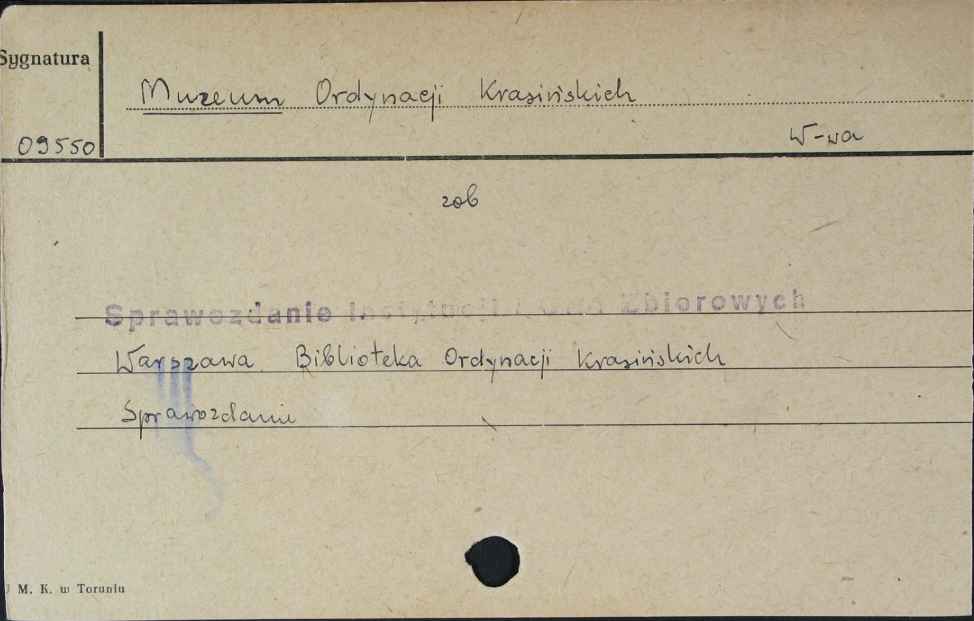 Sygnatura
Muzeum Ordynacji Krasińskich
W-wa
09550
zob
Sprawozdanie Instytucji Zbiorowych
Warszawa. Biblioteka Ordynacji Krasińskich
Sprawozdanie
M. K. w Toruniu